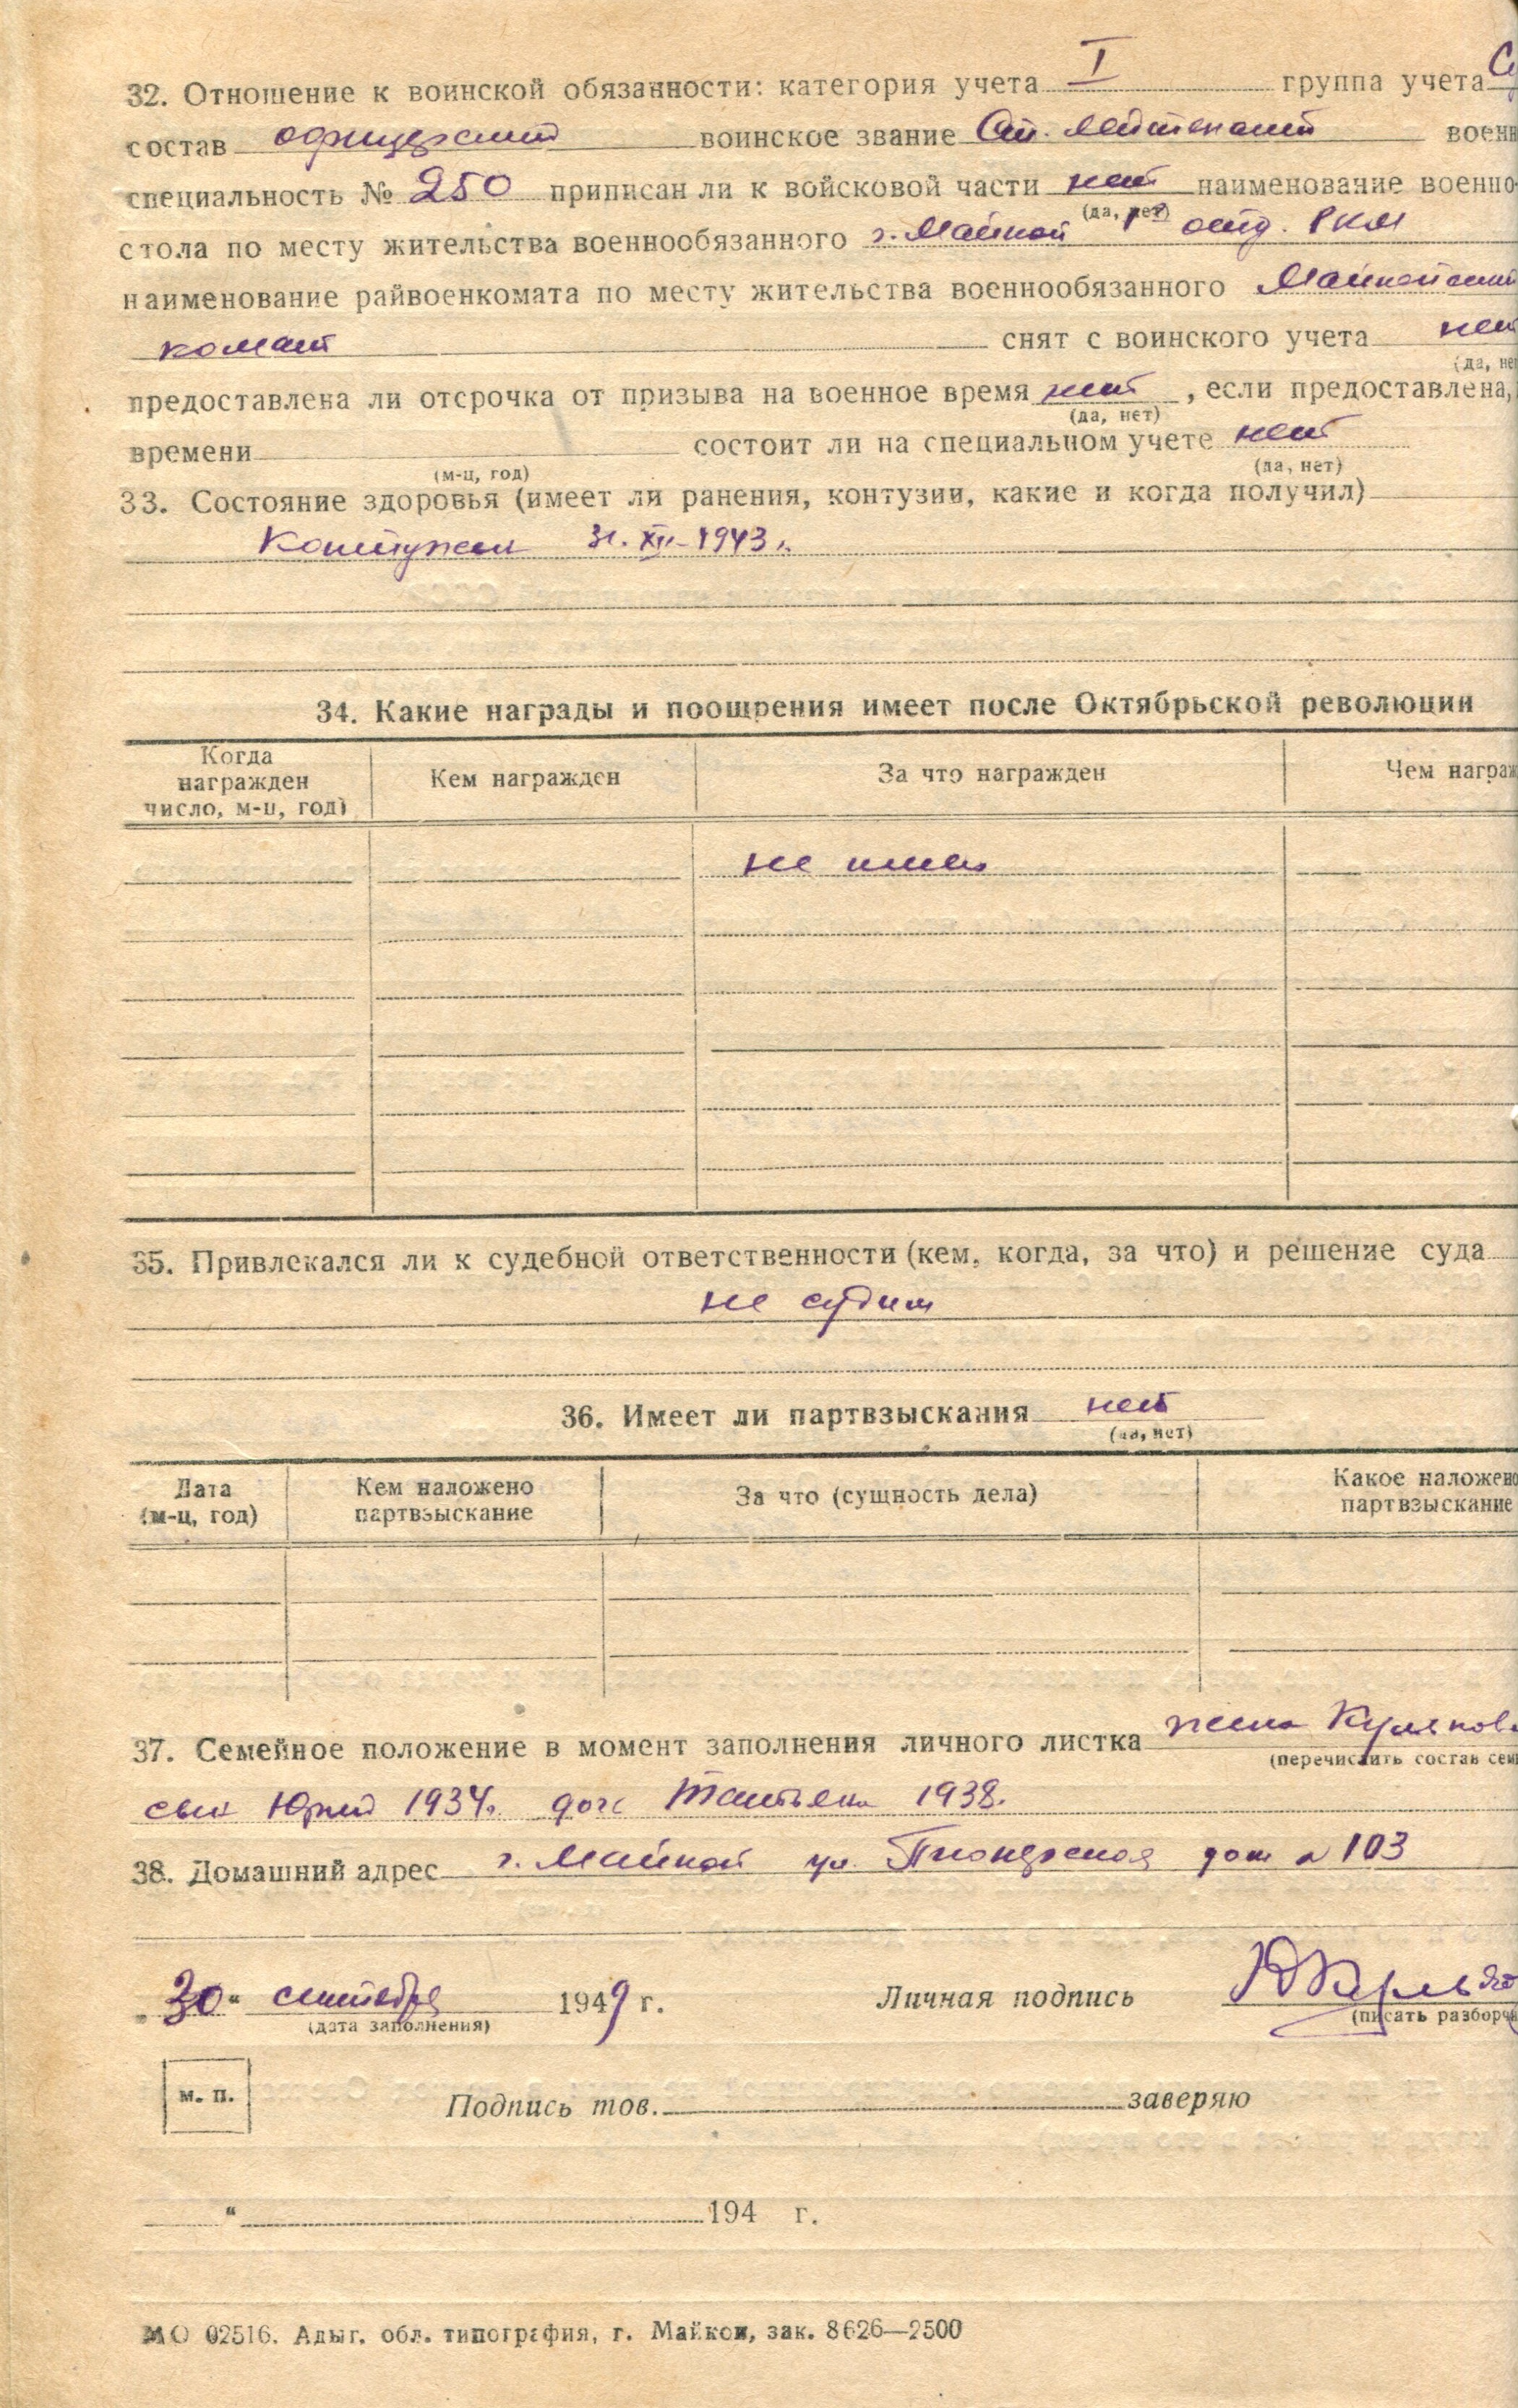 32. Отношение к воинской обязанности: категория учета I группа учета
состав офицерский воинское звание Ст. лейтенант военн
специальность № 250 приписан ли к войсковой части нет наименование военно-
(да, нет)
стола по месту жительства военнообязанного г. Майкоп 1е отд. РКМ
наименование райвоенкомата по месту жительства военнообязанного Майкопский
комат снят с воинского учета нет
(да, нет
предоставлена ли отсрочка от призыва на военное время нет, если предоставлена,
(да, нет)
времени состоит ли на специальном учете нет
(м-ц, год) (да, нет)
33. Состояние здоровья (имеет ли ранения, контузии, какие и когда получил)
Контужен 31. XII-1943 г.
34. Какие награды и поощрения имеет после Октябрьской революции
Когда награжден число, м-ц, год) Кем награжден За что награжден Чем награж
не имею
35. Привлекался ли к судебной ответственности (кем, когда, за что) и решение суда
не судим
36. Имеет ли партвзыскания нет
(да, нет)
Дата (м-ц, год) Кем наложено партвзыскание За что (сущность дела) Какое наложено партвзыскание
37. Семейное положение в момент заполнения личного листка жена
(перечислить состав сем
сын Юрий 1934г. дочь Татьяна 1938.
38. Домашний адрес г. Майкоп ул. Пионерская дом № 103
„30“ сентября 1949 г. Личная подпись
(дата заполнения) (писать разборч
м. п.
Подпись тов. заверяю
“ 194 г.
МО 02516. Адыг. обл. типография, г. Майкоп, зак. 8626—2500